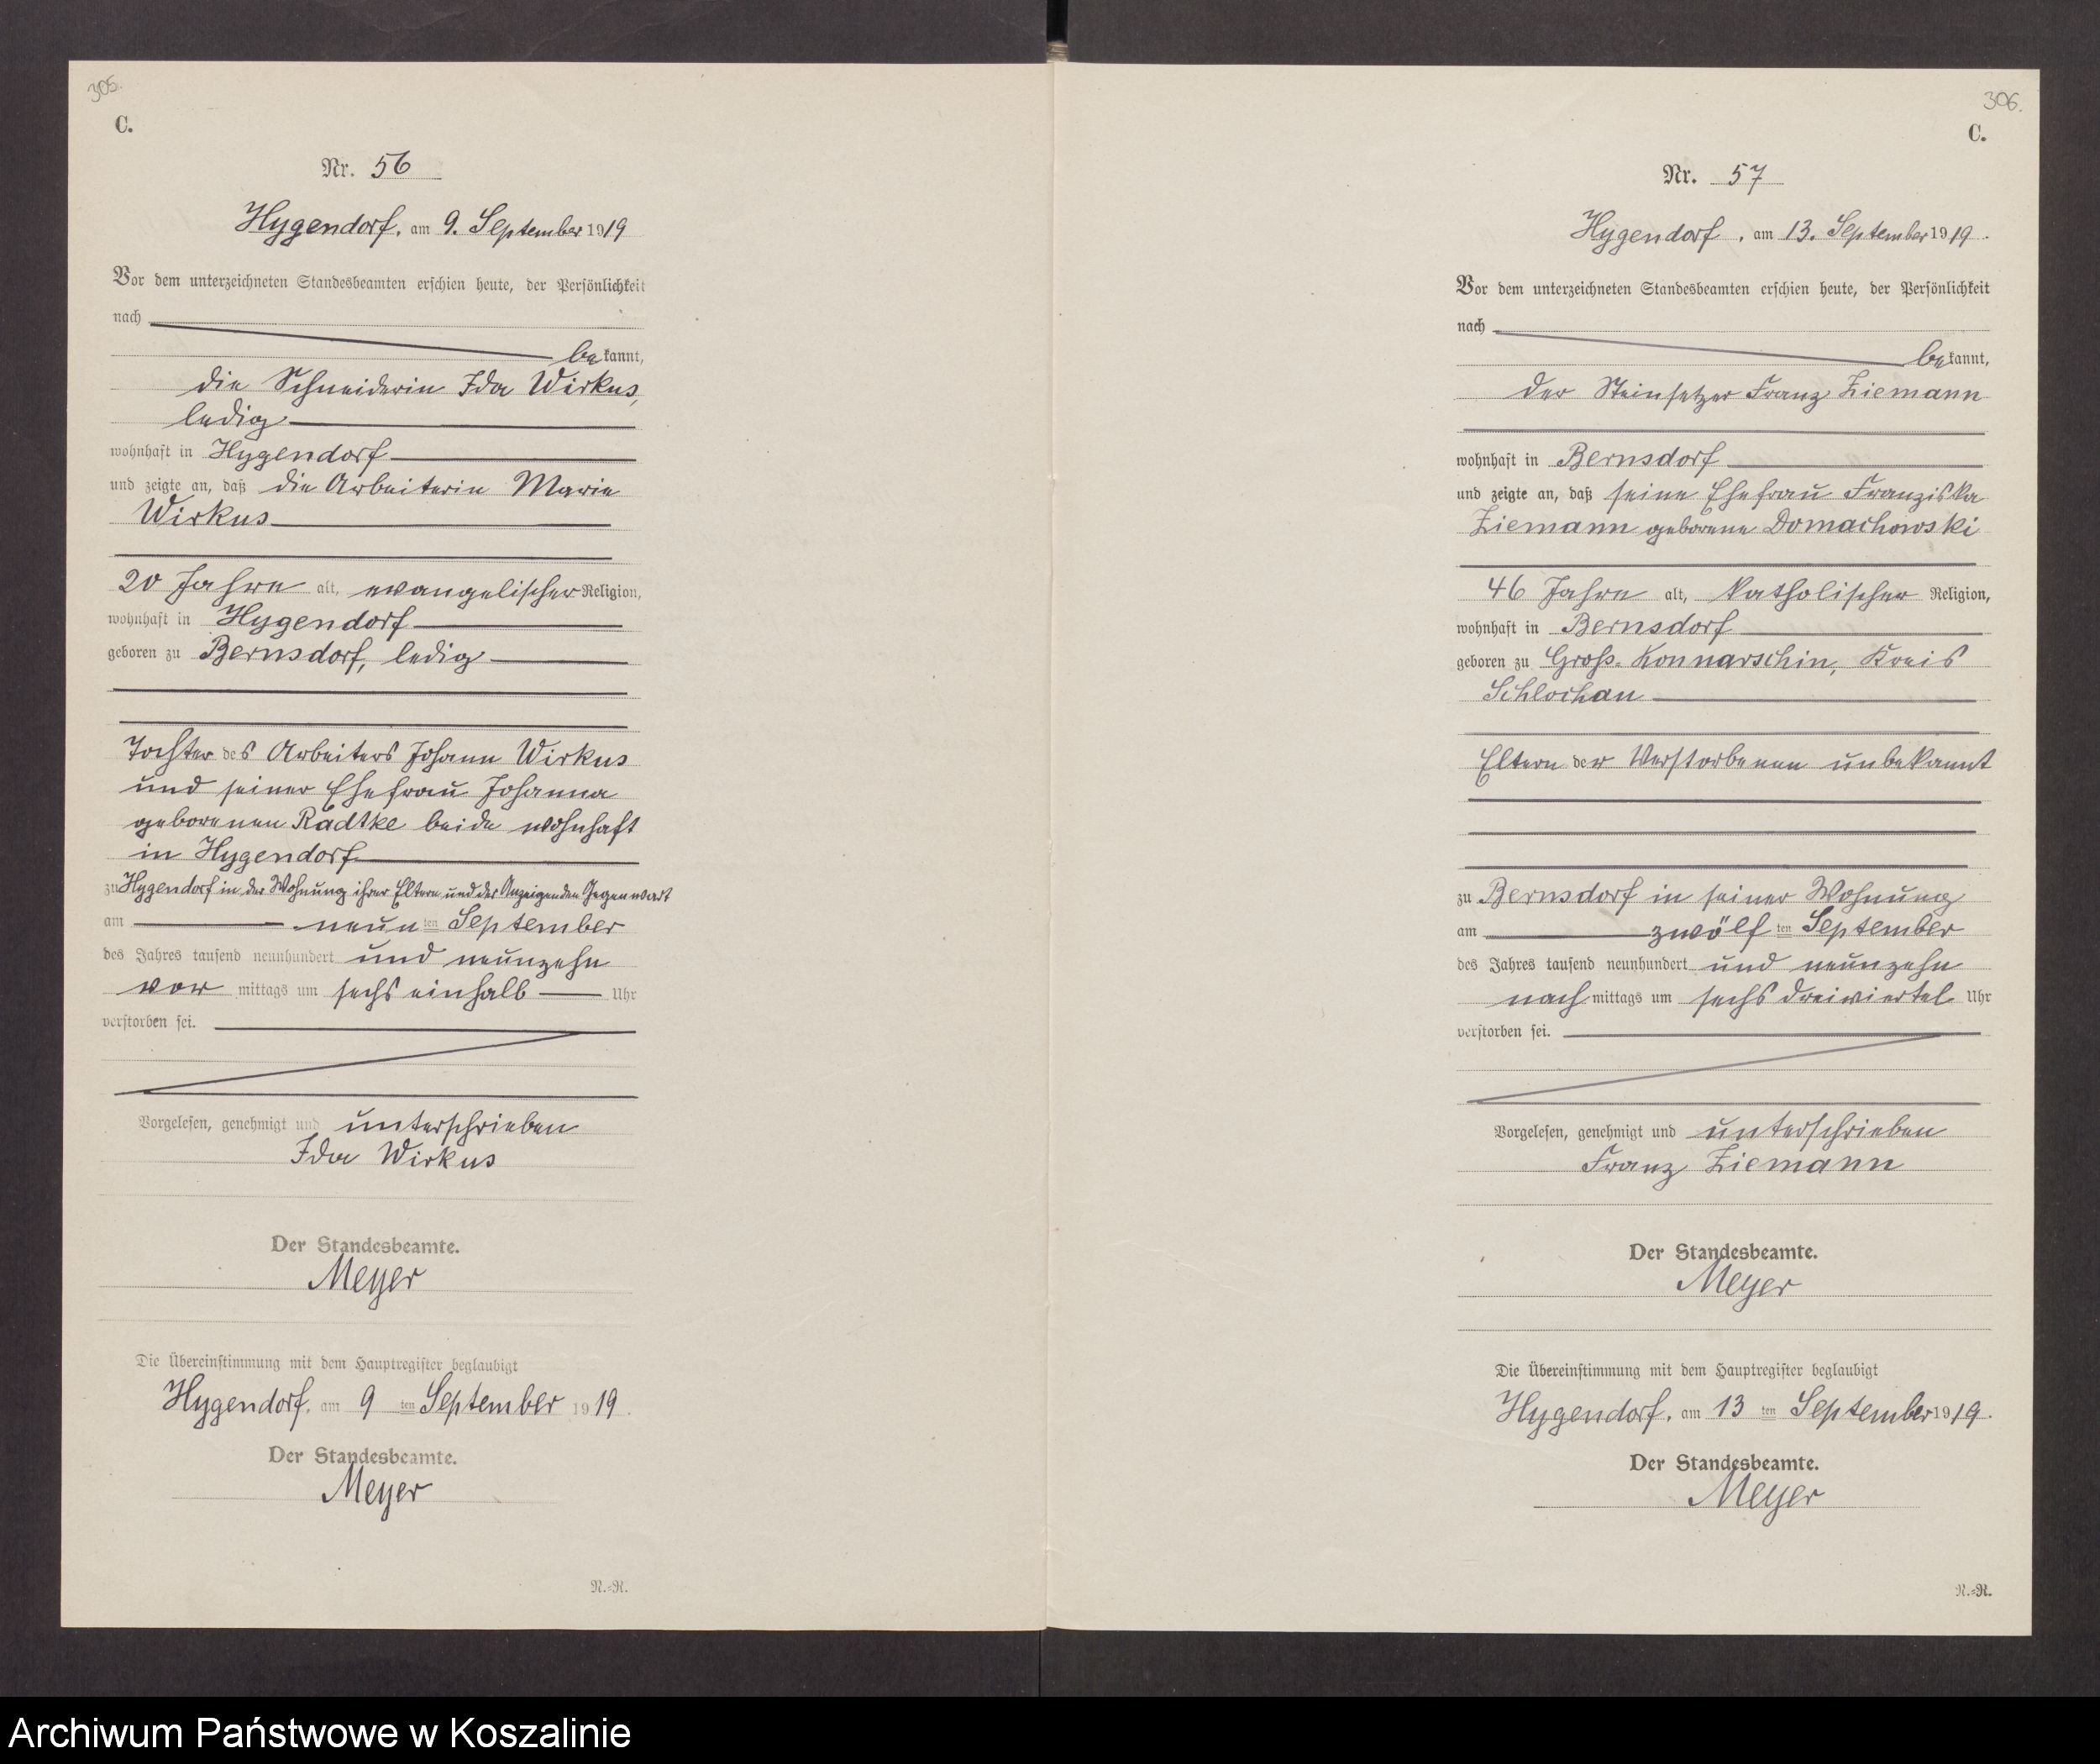 305.
C.
Nr. 56
Hygendorf, am 9. September 1919
Vor dem unterzeichneten Standesbeamten erschien heute, der Persönlichkeit
nach
bekannt,
die Schneiderin Ida Wirkus,
ledig
wohnhaft in Hygendorf
und zeigte an, daß die Arbeiterin Marie
Wirkus
20 Jahre alt, evangelischer Religion,
wohnhaft in Hygendorf
geboren zu Bernsdorf, ledig
Tochter des Arbeiters Johann Wirkus
und seiner Ehefrau Johanna
geborenen Radtke beide wohnhaft
in Hygendorf
zu Hygendorf in der Wohnung ihrer Eltern und der Anzeigenden Gegenwart
am neunten September
des Jahres tausend neunhundert und neunzehn
vormittags um sechs einhalb Uhr
verstorben sei.
Vorgelesen, genehmigt und unterschrieben
Ida Wirkus
Der Standesbeamte.
Meyer
Die Übereinstimmung mit dem Hauptregister beglaubigt
Hygendorf, am 9ten September 1919.
Der Standesbeamte.
Meyer
N.=N.
306.
C.
Nr. 57
Hygendorf, am 13. September 1919.
Vor dem unterzeichneten Standesbeamten erschien heute, der Persönlichkeit
nach
bekannt,
der Steinsetzer Franz Ziemann
wohnhaft in Bernsdorf
und zeigte an, daß seine Ehefrau Franziska
Ziemann geborene Domachowski
46 Jahre alt, katholischer Religion,
wohnhaft in Bernsdorf
geboren zu Groß-Konnarschin, Kreis
Schlochau
Eltern der Verstorbenen unbekannt
zu Bernsdorf in seiner Wohnung
am zwölften September
des Jahres tausend neunhundert und neunzehn
nachmittags um sechs dreiviertel Uhr
verstorben sei.
Vorgelesen, genehmigt und unterschrieben
Franz Ziemann
Der Standesbeamte.
Meyer
Die Übereinstimmung mit dem Hauptregister beglaubigt
Hygendorf, am 13ten September 1919.
Der Standesbeamte.
Meyer
N.=N.
Archiwum Państwowe w Koszalinie